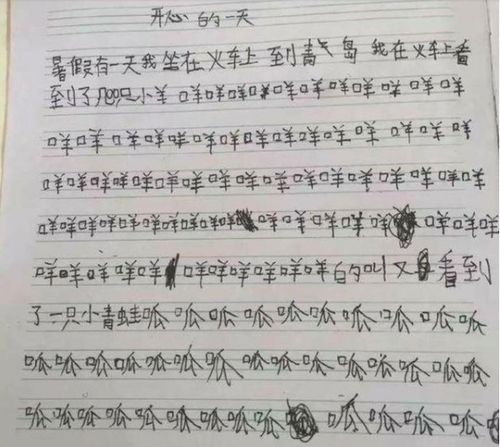 开心的一天
暑假有一天我坐在火车上到青岛我在火车上看
到了只小羊咩咩咩咩咩咩咩咩咩咩咩咩咩
咩咩咩咩咩咩咩咩咩咩咩咩咩咩咩咩咩
咩咩咩咩咩咩咩咩咩咩咩咩咩咩咩咩咩咩咩
咩咩咩咩咩咩咩咩咩咩咩咩咩咩咩咩咩咩
咩咩咩咩咩咩咩咩咩咩咩的叫又看到
了一只小青蛙呱呱呱呱呱呱呱呱呱呱
呱呱呱呱呱呱呱呱呱呱呱呱呱呱
呱呱呱呱呱呱呱呱呱呱呱呱呱